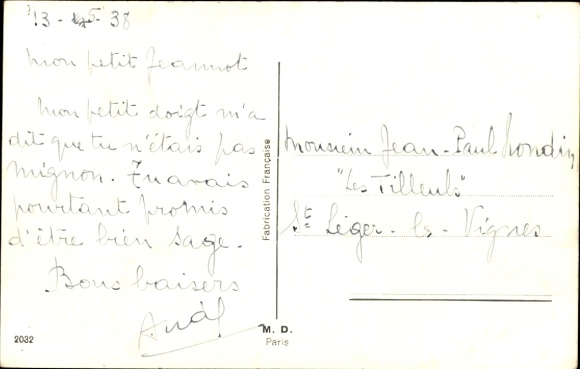 13 - 5 - 38
Mon petit Jeannot
Mon petit doigt m'a
dit que tu n'étais pas
mignon. Tu avais
pourtant promis
d'être bien sage.
Bons baisers
Fabrication Française
Monsieur Jean-Paul
"Les Tilleuls"
St Léger-les-Vignes
2032
M. D.
Paris